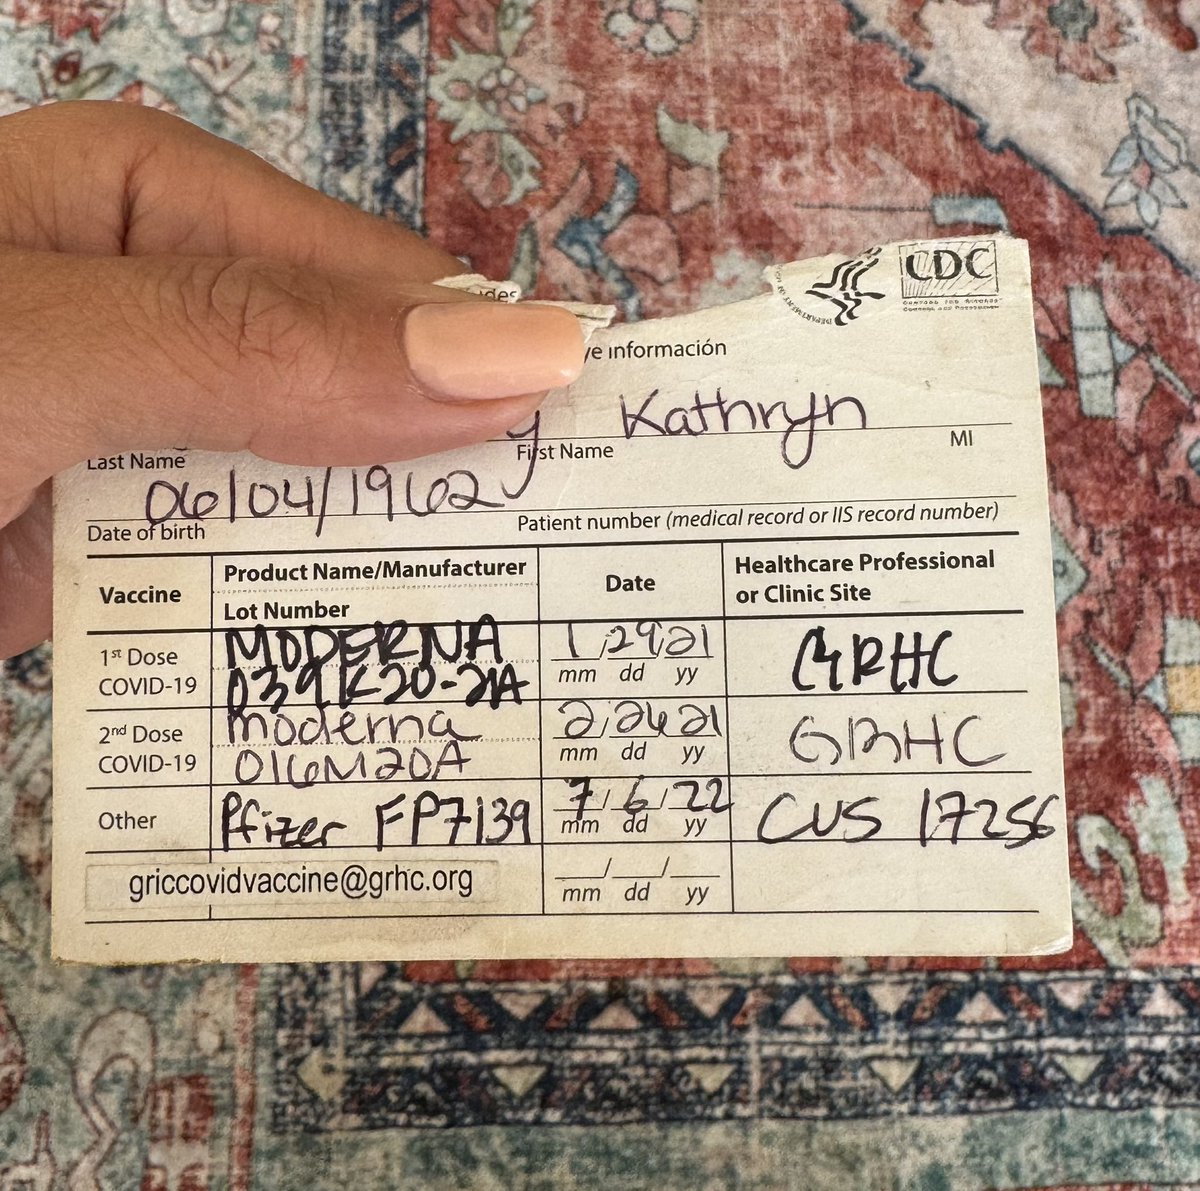 CDC
ve información
Kathryn
Last Name First Name MI
06/04/1962
Date of birth Patient number (medical record or IIS record number)
Vaccine Product Name/Manufacturer Date Healthcare Professional
Lot Number or Clinic Site
1st Dose MODERNA 1/29/21 GRHC
COVID-19 039K20-21A mm dd yy
2nd Dose moderna 2/26/21 GRHC
COVID-19 016M20A mm dd yy
Other Pfizer FP7139 7/6/22 CVS 17256
mm dd yy
griccovidvaccine@grhc.org / /
mm dd yy